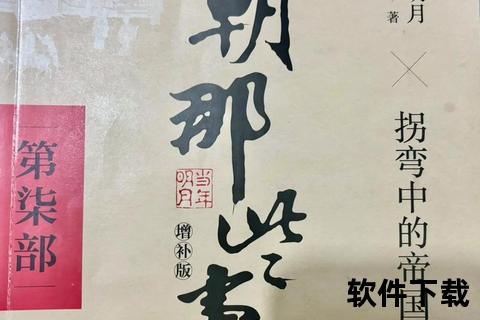 月
著
拐弯中的帝国
朝那些
当年
明月
增补版
第柒部
软件下载